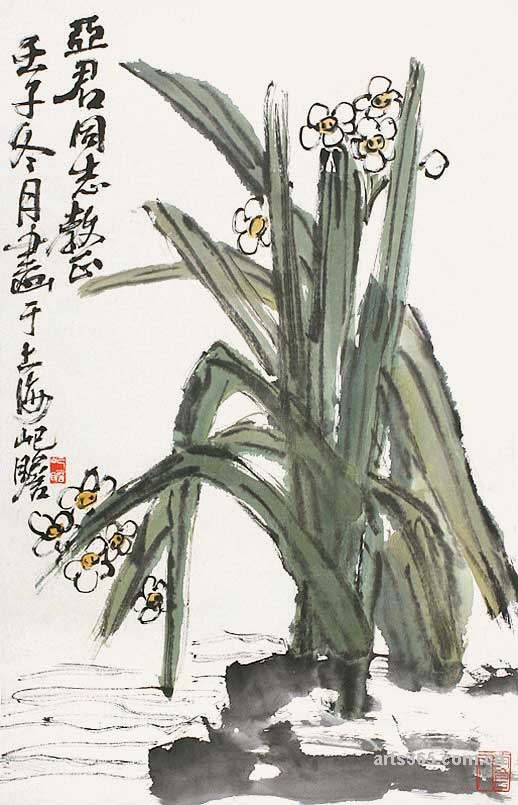 亞君同志教正
壬子冬月畫于上海屺瞻
屺瞻
arts365.com.cn